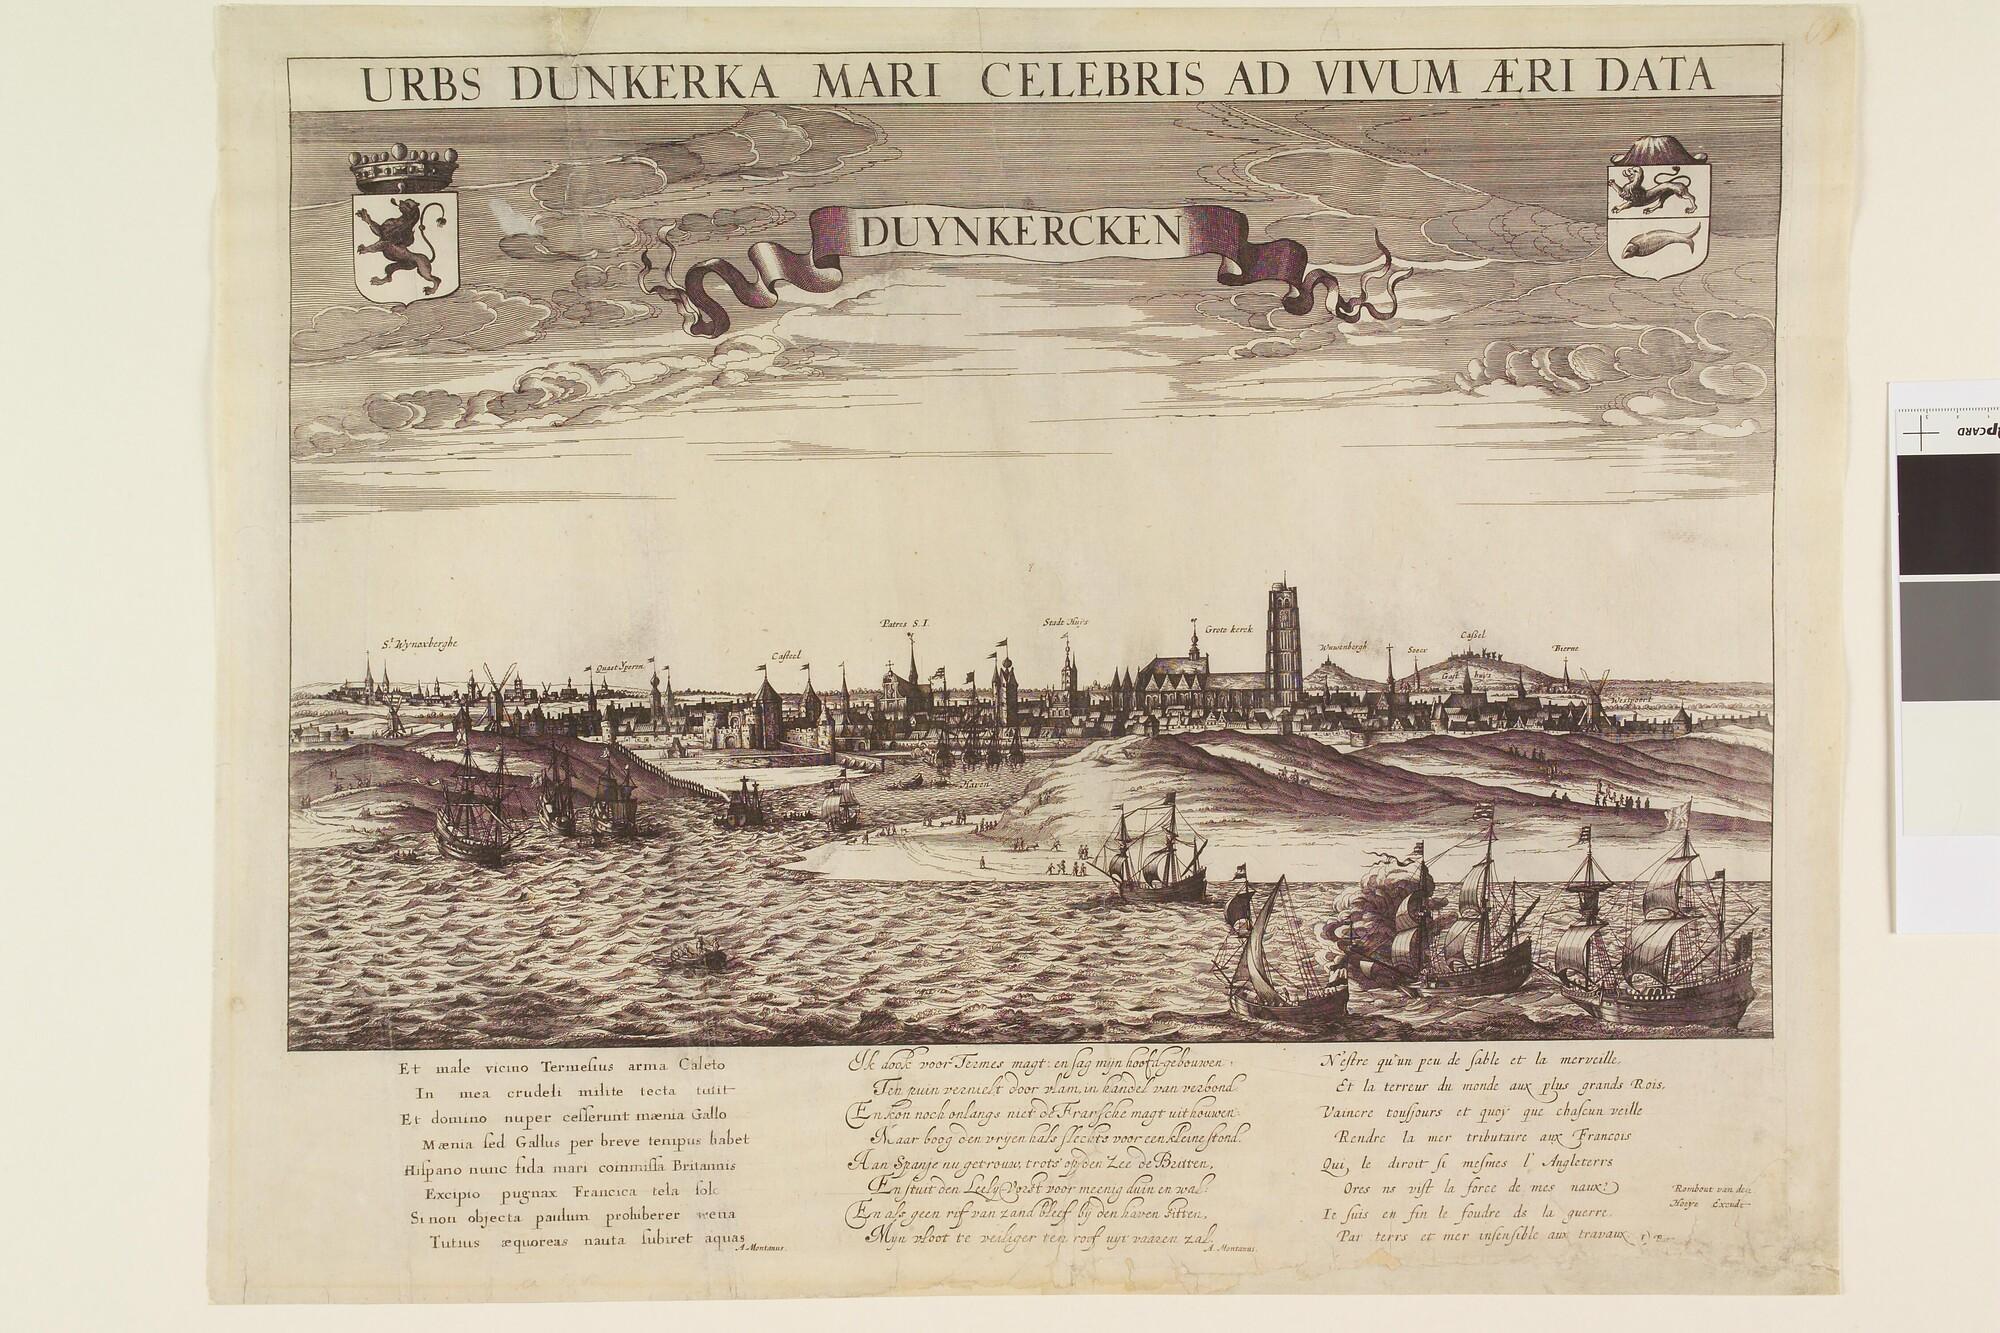 URBS DUNKERKA MARI CELEBRIS AD VIVUM ÆRI DATA
DUYNKERCKEN
St Wynoxberghe
Quaet Yperen
Casteel
Patres S.I.
Stadt Huys
Grote kerck
Wuwenbergh
Soecx
Cassel
Gast huys
Bierne
Westpoort
Haven
Et male vicino Termesius arma Caleto
In mea crudeli milite tecta tulit
Et domino nuper cesserunt mænia Gallo
Mænia sed Gallus per breve tempus habet
Hispano nunc fida mari commissa Britannis
Excipio pugnax Francica tela solo
Si non objecta paulum prohiberer arena
Tutius æquoreas nauta subiret aquas
A. Montanus.
Ik dook voor Termes magt: en sag mijn hoofd-gebouwen
Ten puin vernielt door vlam, in handel van verbond.
En kon noch onlangs niet de Fransche magt uithouwen:
Maar boog den vryen hals slechts voor een kleine stond.
Aan Spanje nu getrouw, trots op den Zee de Britten,
En stuit den Leely-Vorst voor meenig duin en wal:
En als geen rif van zand bleef by den haven sitten,
Mijn vloot te veiliger ten roof uyt vaaren zal.
A. Montanus.
N'estre qu'un peu de sable et la merveille,
Et la terreur du monde aux plus grands Rois,
Vaincre tousjours et quoy que chascun veille
Rendre la mer tributaire aux Francois
Qui, le diroit si mesmes l' Angleterrs
Ores ns vist la force de mes naux?
Ie suis en fin le foudre ds la guerre.
Par terrs et mer insensible aux travaux.
Rombout van den
Hoeye Excudt
CARD